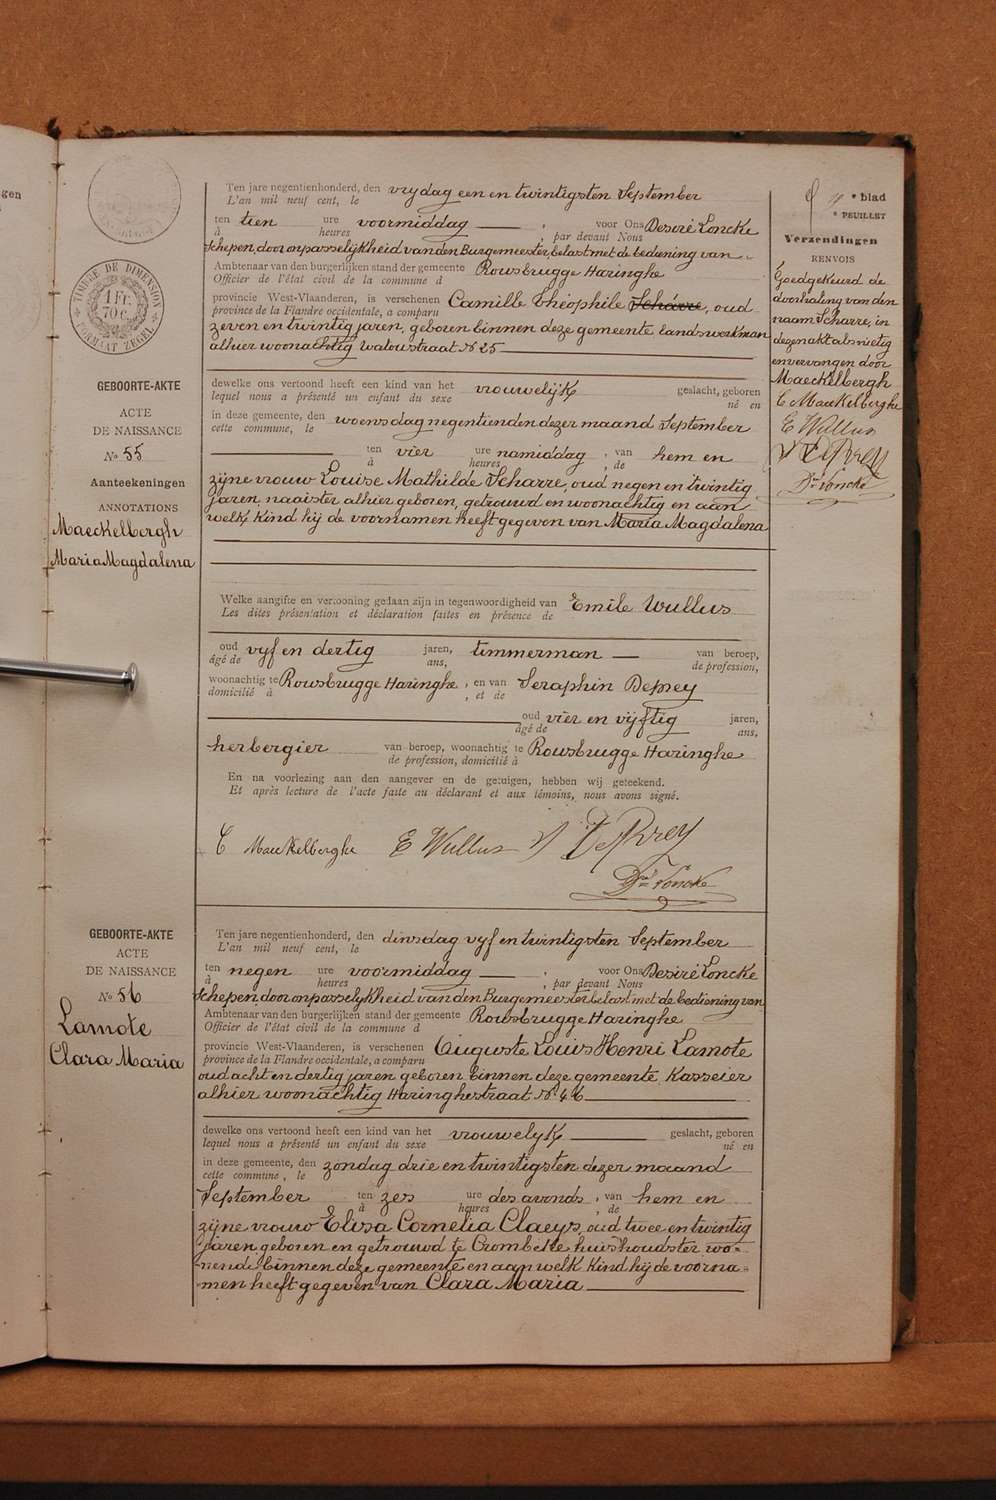 gen
TIMBRE DE DIMENSION
1 Fr.
70 c.
FORMAAT ZEGEL
blad
FEUILLET
Verzendingen
RENVOIS
Goedgekeurd de
doorhaling van den
naam Scharre, in
deze akt als nietig
en vervangen door
Maeckelbergh
C Maeckelberghe
E Wullus
Dré Loncke
GEBOORTE-AKTE
ACTE
DE NAISSANCE
No 55
Aanteekeningen
ANNOTATIONS
Maeckelbergh
Maria Magdalena
Ten jare negentienhonderd, den vrydag een en twintigsten September
L'an mil neuf cent, le
ten tien ure voormiddag , voor Ons Desiré Loncke
à heures , par devant Nous
Schepen, door onpasselijkheid van den Burgemeester, belast met de bediening van
Ambtenaar van den burgerlijken stand der gemeente Rousbrugge Haringhe
Officier de l'état civil de la commune d
provincie West-Vlaanderen, is verschenen Camille Théophile Scharre, oud
province de la Flandre occidentale, a comparu
zeven en twintig jaren, geboren binnen deze gemeente landswerkman
alhier woonachtig Watoustraat No 25
dewelke ons vertoond heeft een kind van het vrouwelijk geslacht, geboren
lequel nous a présenté un enfant du sexe né en
in deze gemeente, den woensdag negentienden dezer maand September
cette commune, le
ten vier ure namiddag , van hem en
à heures , de
zijne vrouw Louise Mathilde Scharre, oud negen en twintig
jaren, naaister alhier geboren, getrouwd en woonachtig en aan
welk kind hij de voornamen heeft gegeven van Maria Magdalena
Welke aangifte en vertooning gedaan zijn in tegenwoordigheid van Emile Wullus
Les dites présentation et déclaration faites en présence de
oud vyf en dertig jaren, timmerman van beroep,
âgé de ans, de profession,
woonachtig te Rousbrugge Haringhe , en van Seraphin Deprey
domicilié à , et de
oud vier en vijftig jaren,
âgé de ans,
herbergier van beroep, woonachtig te Rousbrugge Haringhe
de profession, domicilié à
En na voorlezing aan den aangever en de getuigen, hebben wij geteekend.
Et après lecture de l'acte faite au déclarant et aux témoins, nous avons signé.
C Maeckelberghe E Wullus S Deprey
Dré Loncke
GEBOORTE-AKTE
ACTE
DE NAISSANCE
No 56
Lamote
Clara Maria
Ten jare negentienhonderd, den dinsdag vyf en twintigsten September
L'an mil neuf cent, le
ten negen ure voormiddag , voor Ons Desiré Loncke
à heures , par devant Nous
Schepen, door onpasselykheid van den Burgemeester belast met de bediening van
Ambtenaar van den burgerlijken stand der gemeente Rousbrugge Haringhe
Officier de l'état civil de la commune d
provincie West-Vlaanderen, is verschenen Auguste Louis Henri Lamote
province de la Flandre occidentale, a comparu
oud acht en dertig jaren geboren binnen deze gemeente Kasseier
alhier woonachtig Haringhestraat No 46
dewelke ons vertoond heeft een kind van het vrouwelyk geslacht, geboren
lequel nous a présenté un enfant du sexe né en
in deze gemeente, den zondag drie en twintigsten dezer maand
cette commune, le
September ten zes ure des avonds , van hem en
à heures , de
zijne vrouw Elisa Cornelia Claeys, oud twee en twintig
jaren geboren en getrouwd te Crombeke huishoudster wo-
nende binnen deze gemeente en aan welk kind hij de voorna-
men heeft gegeven van Clara Maria